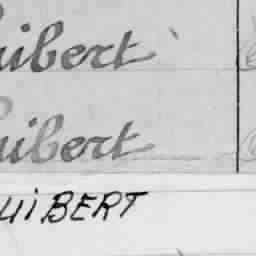 uibert
uibert
UiBERT